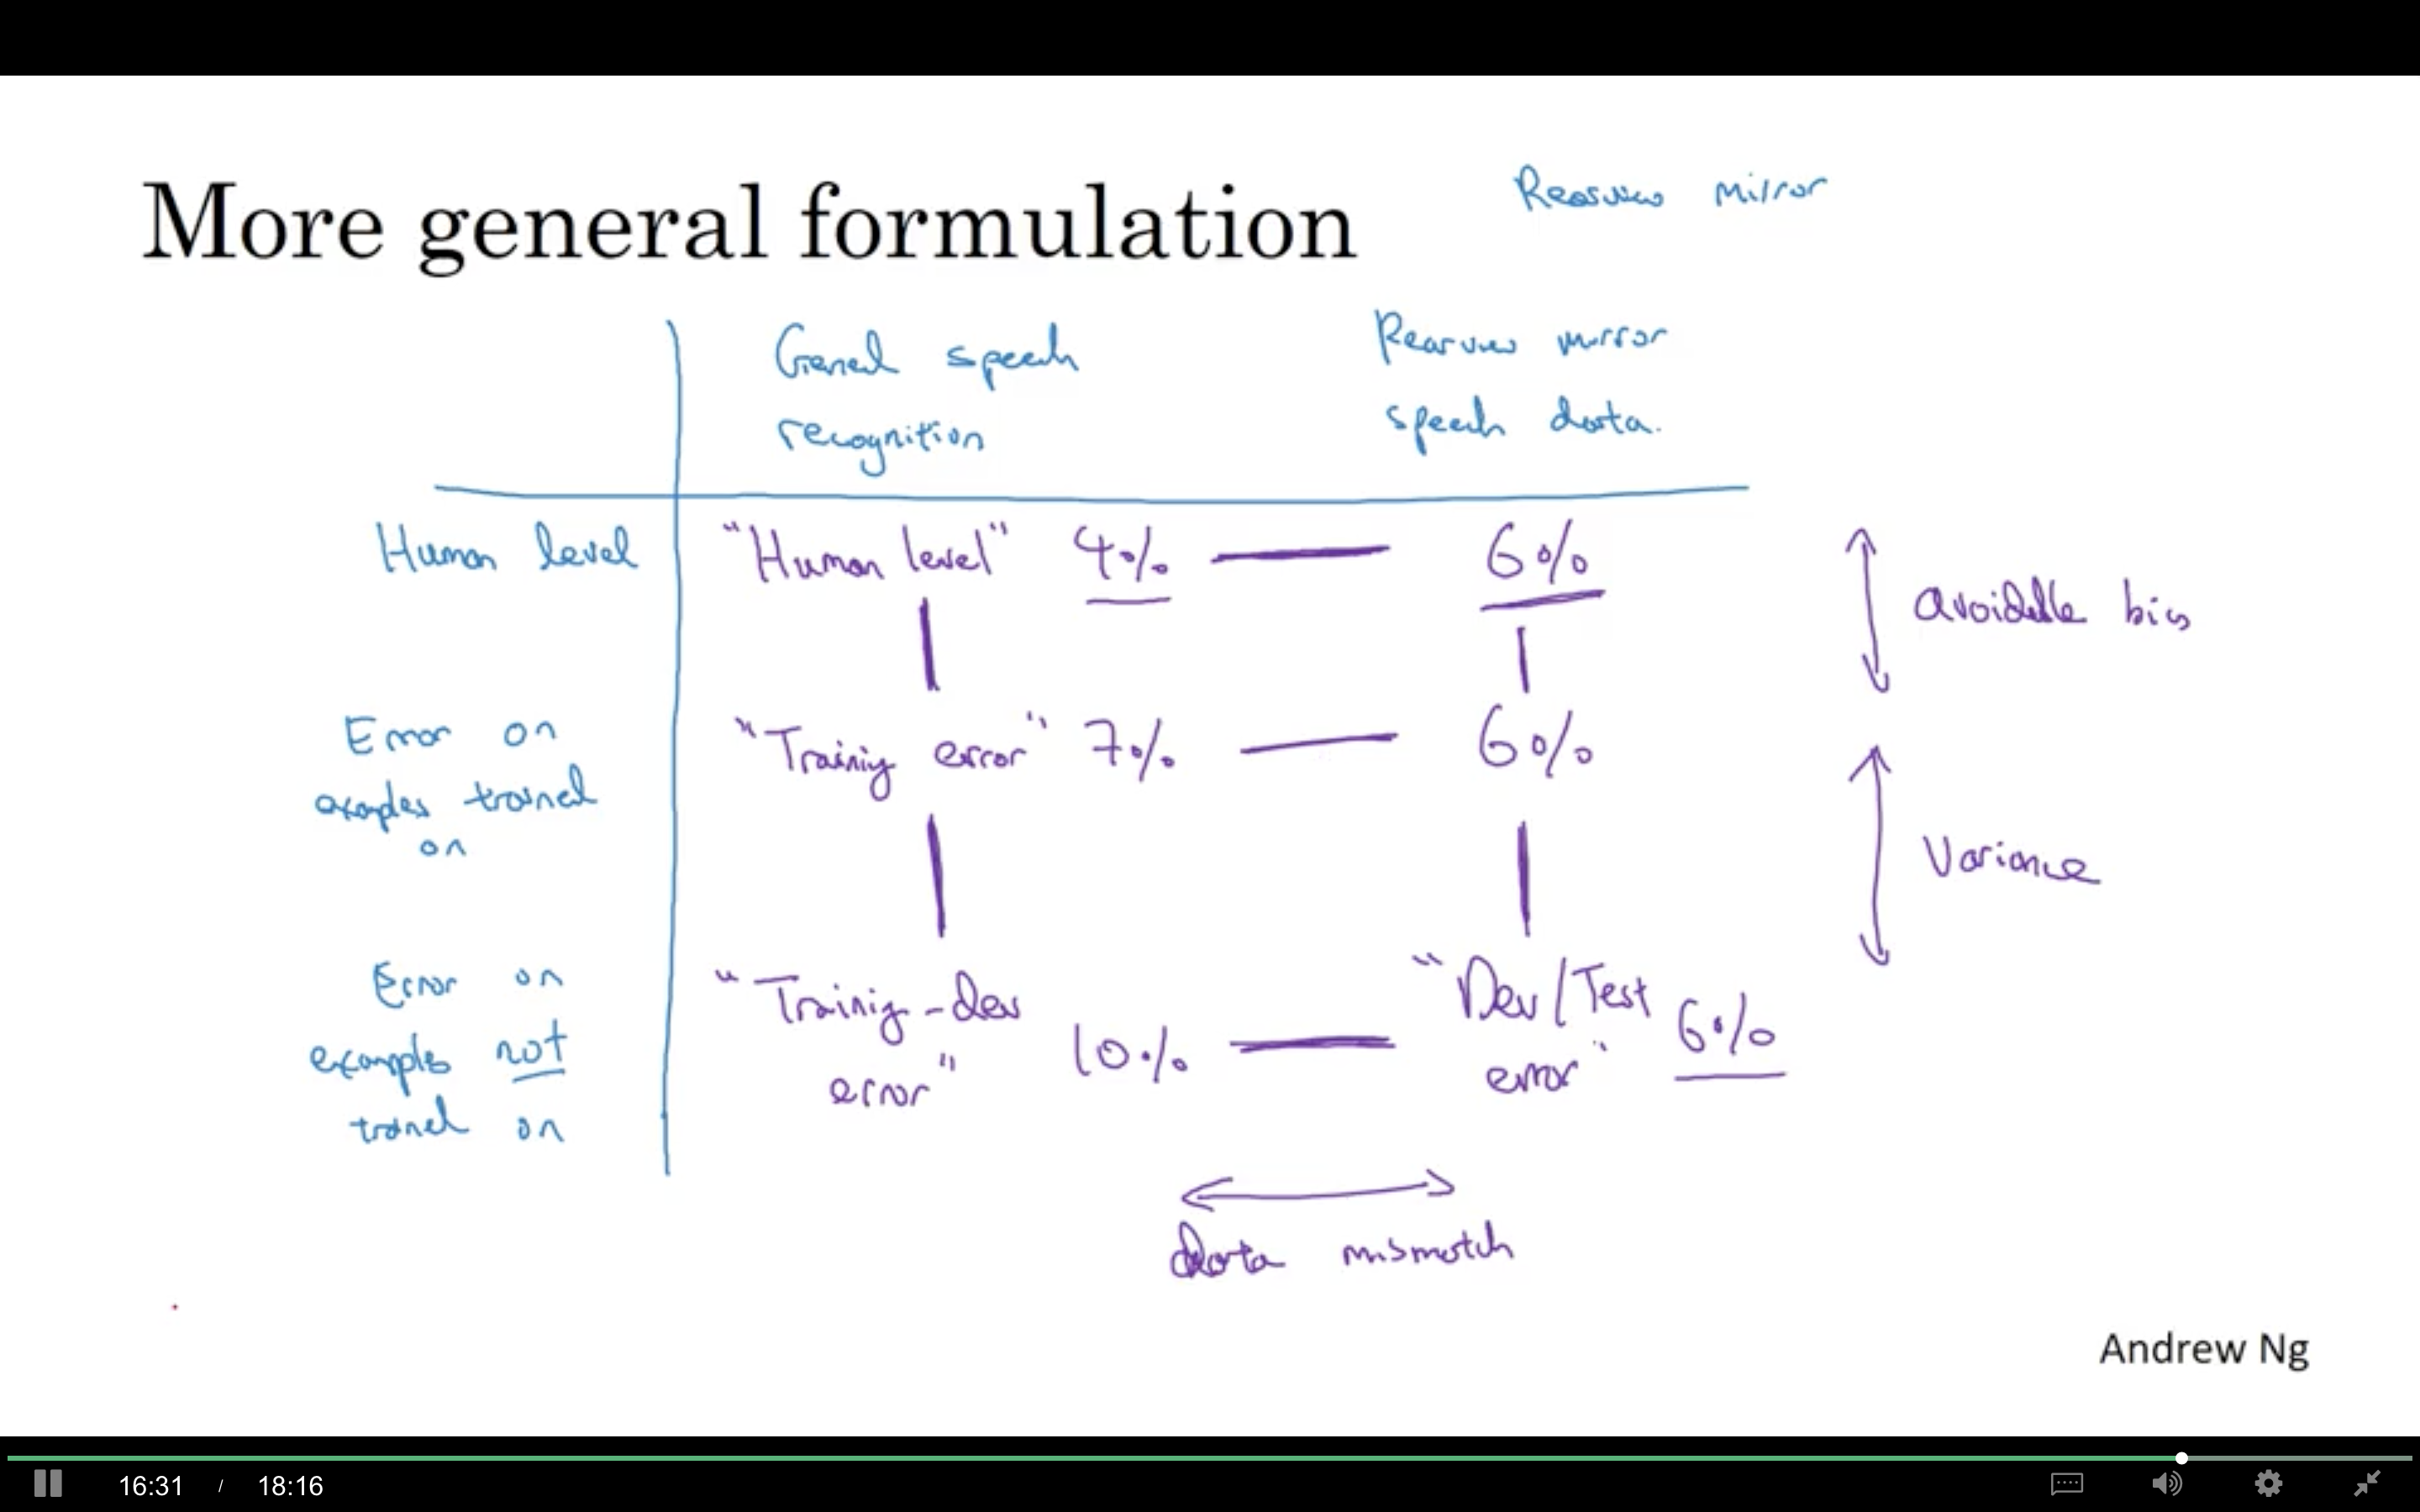 More general formulation
Rearview mirror
General speech
recognition
Rearview mirror
speech data.
Human level
"Human level" 4%
6%
avoidable bias
Error on
examples trained
on
"Training error" 7%
6%
Variance
Error on
examples not
trained on
"Training-dev
error"
10%
"Dev/Test
error"
6%
data mismatch
Andrew Ng
16:31 / 18:16